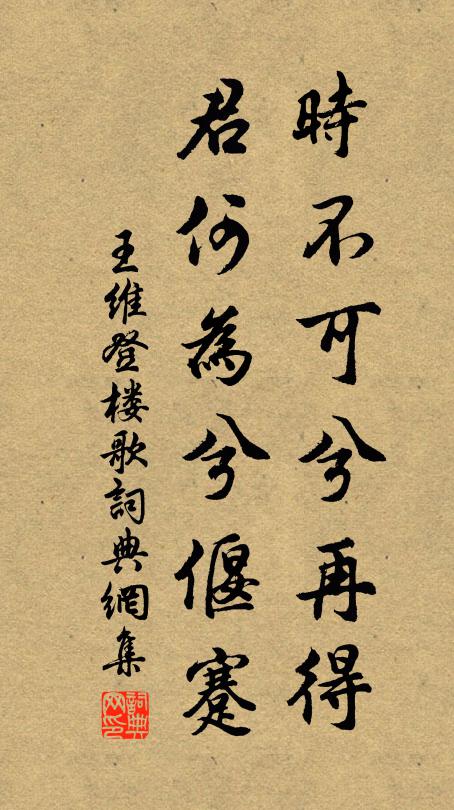 時不可兮再得
君何為兮偃蹇
王維登楼歌詞典網集
詞典
网印